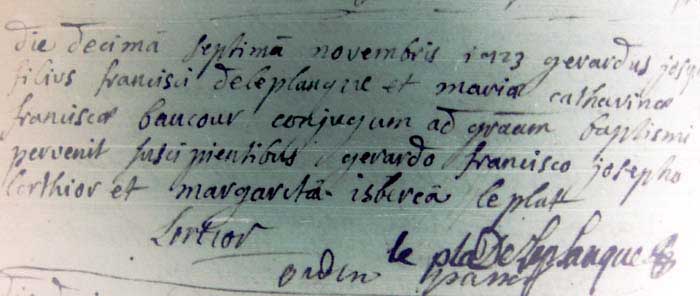 die decimâ septimâ novembris 1723 gerardus josep
filius francisci deleplanque et mariæ catharinæ
franciscæ baucour conjugum ad graam baptismi
pervenit suscipientibus gerardo francisco josepho
lorthior et margaretâ isbercâ le platt
Lortior le pla Deleplanque
pastor